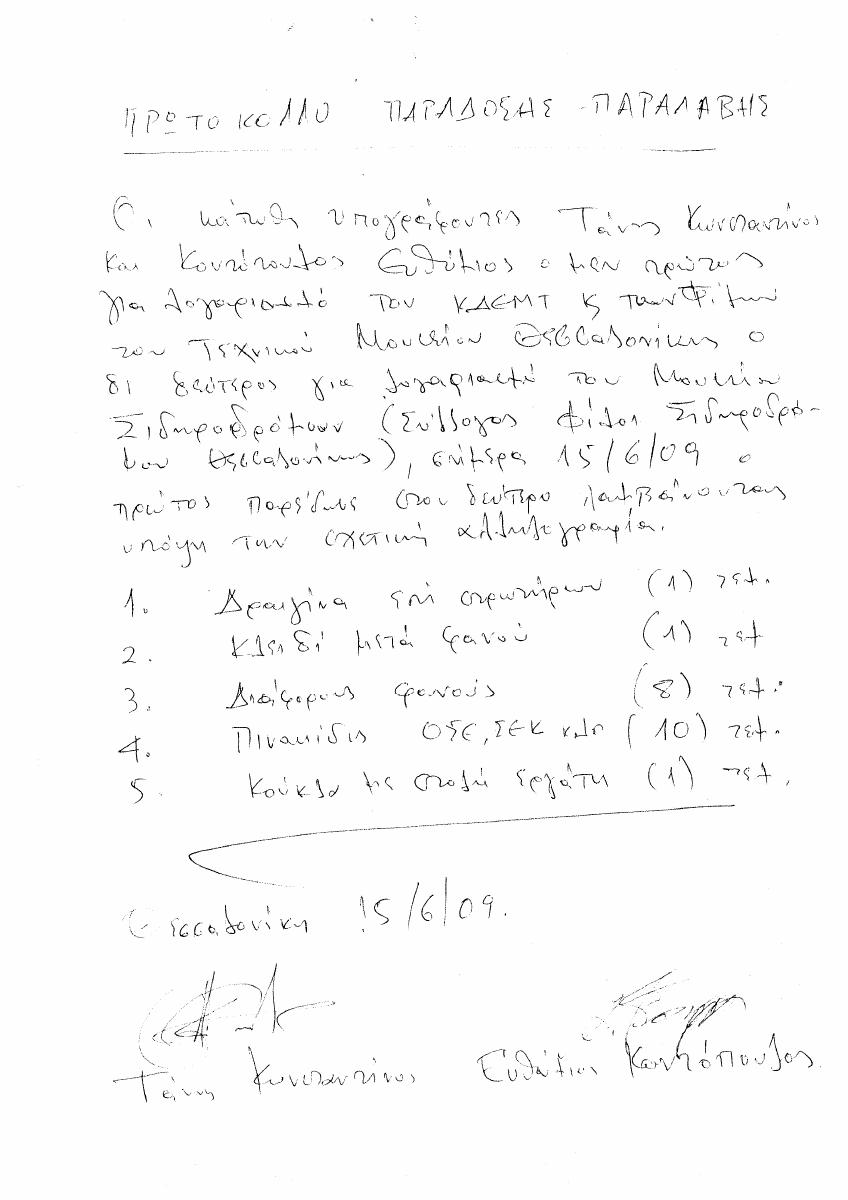 ΠΡΩΤΟΚΟΛΛΟ ΠΑΡΑΔΟΣΗΣ - ΠΑΡΑΛΑΒΗΣ
Οι κάτωθι υπογράφοντες Τάνης Κωνσταντίνος
και Κοντόπουλος Ευθύμιος ο μεν πρώτος
για λογαριασμό του ΚΔΕΜΤ
του Τεχνικού Μουσείου Θεσσαλονίκης ο
δε δεύτερος για λογαριασμό του Μουσείου
Σιδηροδρόμων (Σύλλογος Φίλοι Σιδηροδρό-
μου Θεσσαλονίκης), σήμερα 15/6/09 ο
πρώτος παρέδωσε στον δεύτερο λαμβάνοντας
υπόψη την σχετική αλληλογραφία.
1. Δραιζίνα επί στρωτήρων (1) τεμ.
2. Κλειδί μετά φανού (1) τεμ
3. Διάφορους φανούς (8) τεμ.
4. Πινακίδες ΟΣΕ, ΣΕΚ κλπ (10) τεμ.
5. Κούκλα με στολή εργάτη (1) τεμ.
Θεσσαλονίκη 15/6/09.
Τάνης Κωνσταντίνος Ευθύμιος Κοντόπουλος